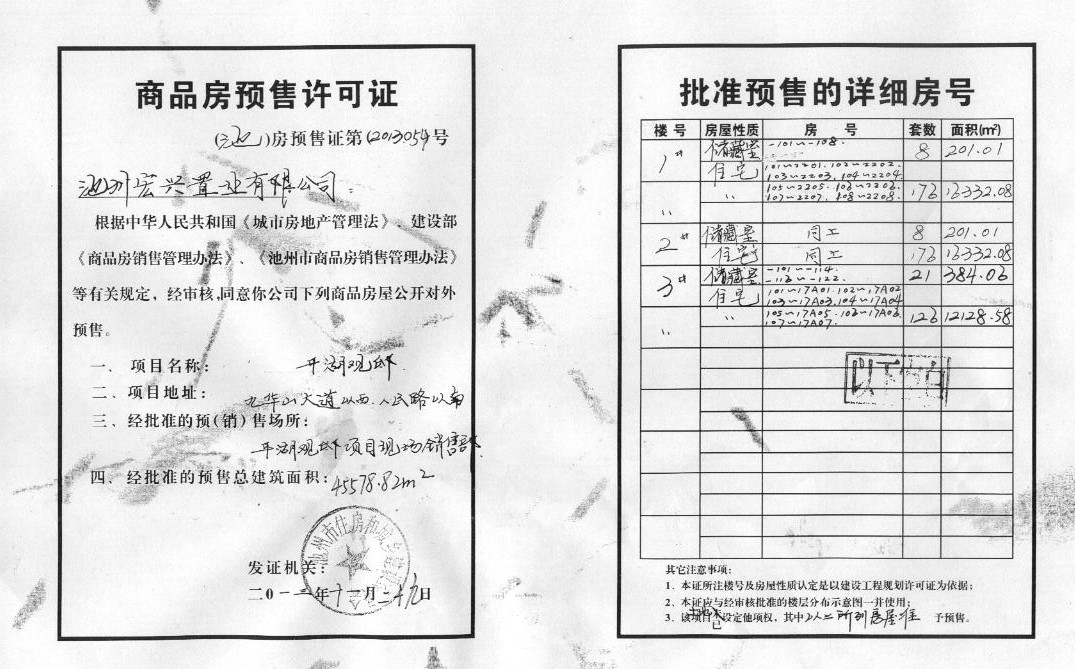 商品房预售许可证
(池)房预售证第(2013054号
池州宏兴置业有限公司：
根据中华人民共和国《城市房地产管理法》、建设部
《商品房销售管理办法》、《池州市商品房销售管理办法》
等有关规定，经审核，同意你公司下列商品房屋公开对外
预售。
一、项目名称：平湖观邸
二、项目地址：九华山大道以西、人民路以南
三、经批准的预(销)售场所：
平湖观邸项目现场销售部
四、经批准的预售总建筑面积：45578.82m²
池州市住房和城乡建设
发证机关：
二0一三年十一月二十九日
批准预售的详细房号
楼号 房屋性质 房号 套数 面积(m²)
1# 储藏室 -101～-108. 8 201.01
住宅 101～2201. 102～2202.
103～2203. 104～2204
〃 105～2205. 106～2206. 176 16332.08
107～2207. 108～2208.
〃
2# 储藏室 同上 8 201.01
住宅 同上 176 16332.08
3# 储藏室 -101～-114. 21 384.06
-116～-122.
住宅 101～17A01. 102～17A02
103～17A03. 104～17A04
〃 〃 105～17A05. 106～17A06. 126 12128.58
107～17A07.
以下空白
其它注意事项：
1、本证所注楼号及房屋性质认定是以建设工程规划许可证为依据；
2、本证应与经审核批准的楼层分布示意图一并使用；
3、该项目 设定他项权，其中 所列房屋准 予预售。